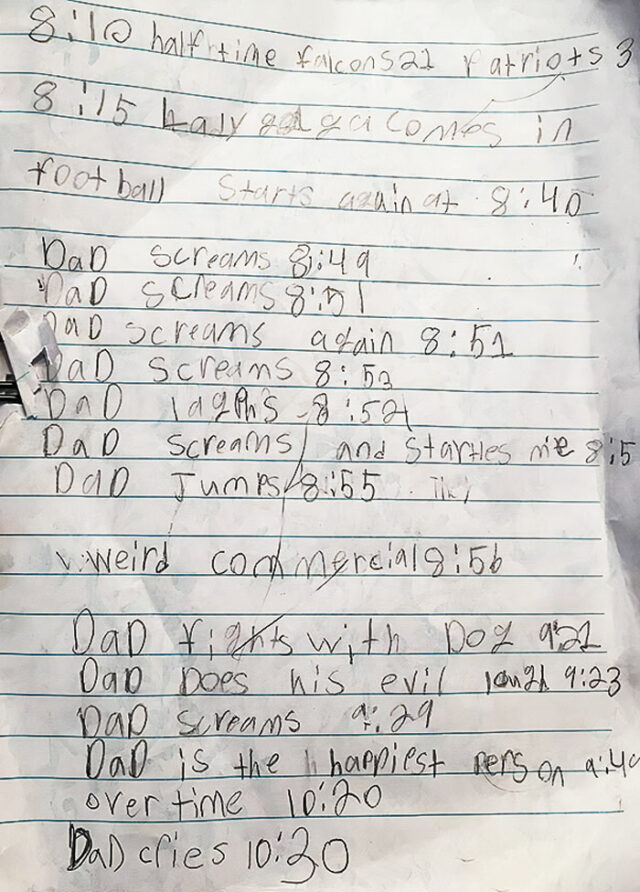 8:10 half time falcons 21 Patriots 3
8:15 Lady gaga comes in
football starts again at 8:40
DaD screams 8:49
DaD screams 8:51
DaD screams again 8:51
DaD screams 8:53
DaD laghs 8:54
DaD screams and startles me 8:5
DaD Jumps 8:55
weird commercial 8:56
DaD fights with Dog 9:21
DaD Does his evil laugh 9:23
DaD screams 9:29
DaD is the happiest person 9:40
over time 10:20
DaD cries 10:30